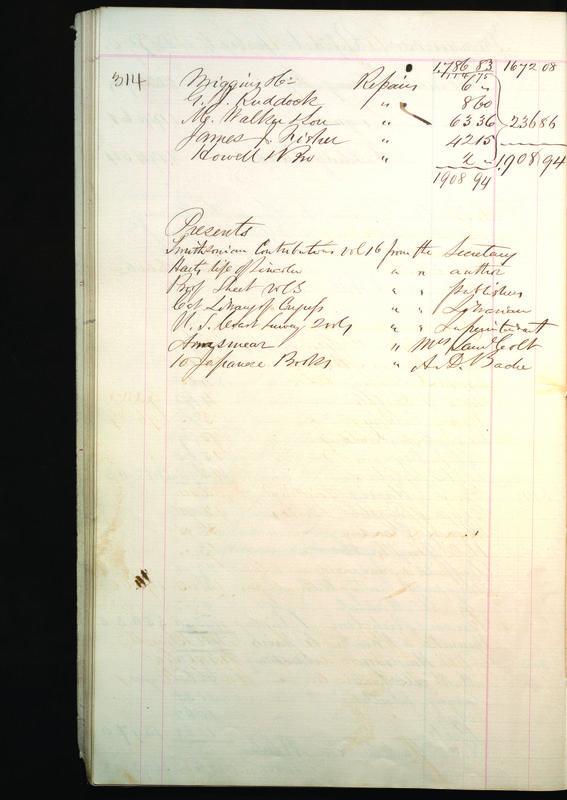 1,786 83 1672 08
314 Wiggins & Co Repairs 6 "
G. J. Ruddock " " 8 60
M. Walker & Son " 63 36 236 86
James J. Fisher " 42 15
Howell & Bro " 2 " 1,908 94
1908 94
Presents
Smithsonian Contributions vol 16 from the Secretary
Harts life of Lincoln " " author
Proof Sheet vol 3 " " publishers
Cat Library of Congress " " Librarian
U. S. Coast Survey 2 vols " " Superintendent
Armsmear " Mrs Saml Colt
10 Japanese Books " A. D. Bache